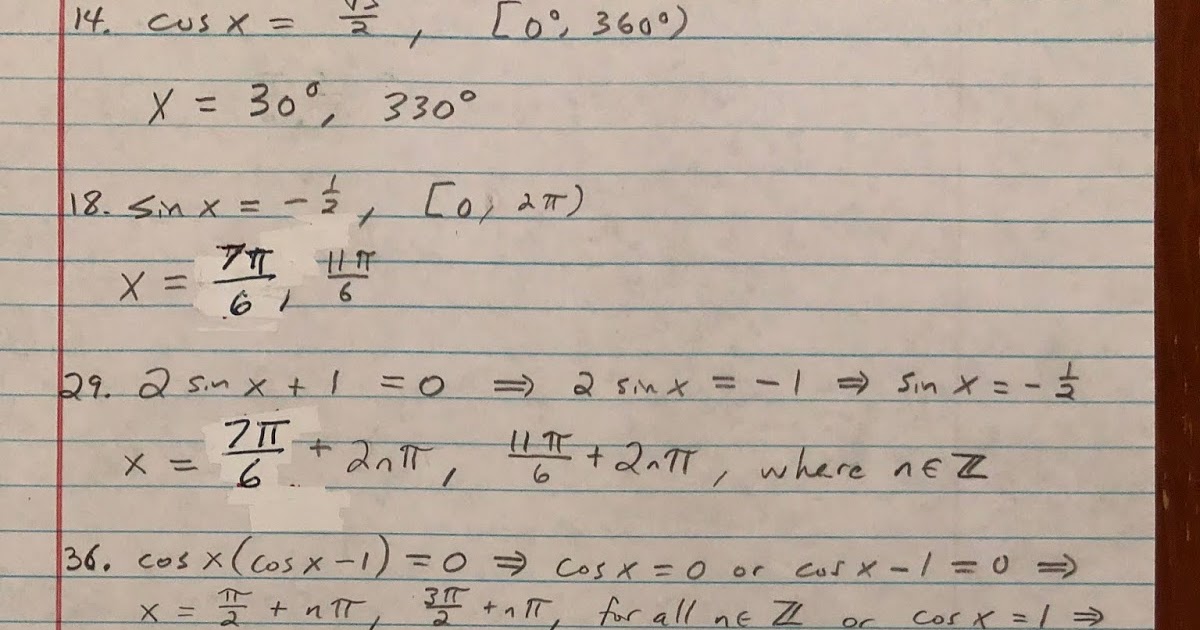 14. cos x = √3/2, [0°, 360°)
x = 30°, 330°
18. sin x = -1/2, [0, 2π)
x = 7π/6, 11π/6
29. 2 sin x + 1 = 0 ⇒ 2 sin x = -1 ⇒ sin x = -1/2
x = 7π/6 + 2nπ, 11π/6 + 2nπ, where n∈ℤ
36. cos x (cos x - 1) = 0 ⇒ cos x = 0 or cos x - 1 = 0 ⇒
x = π/2 + nπ, 3π/2 + nπ, for all n∈ℤ or cos x = 1 ⇒